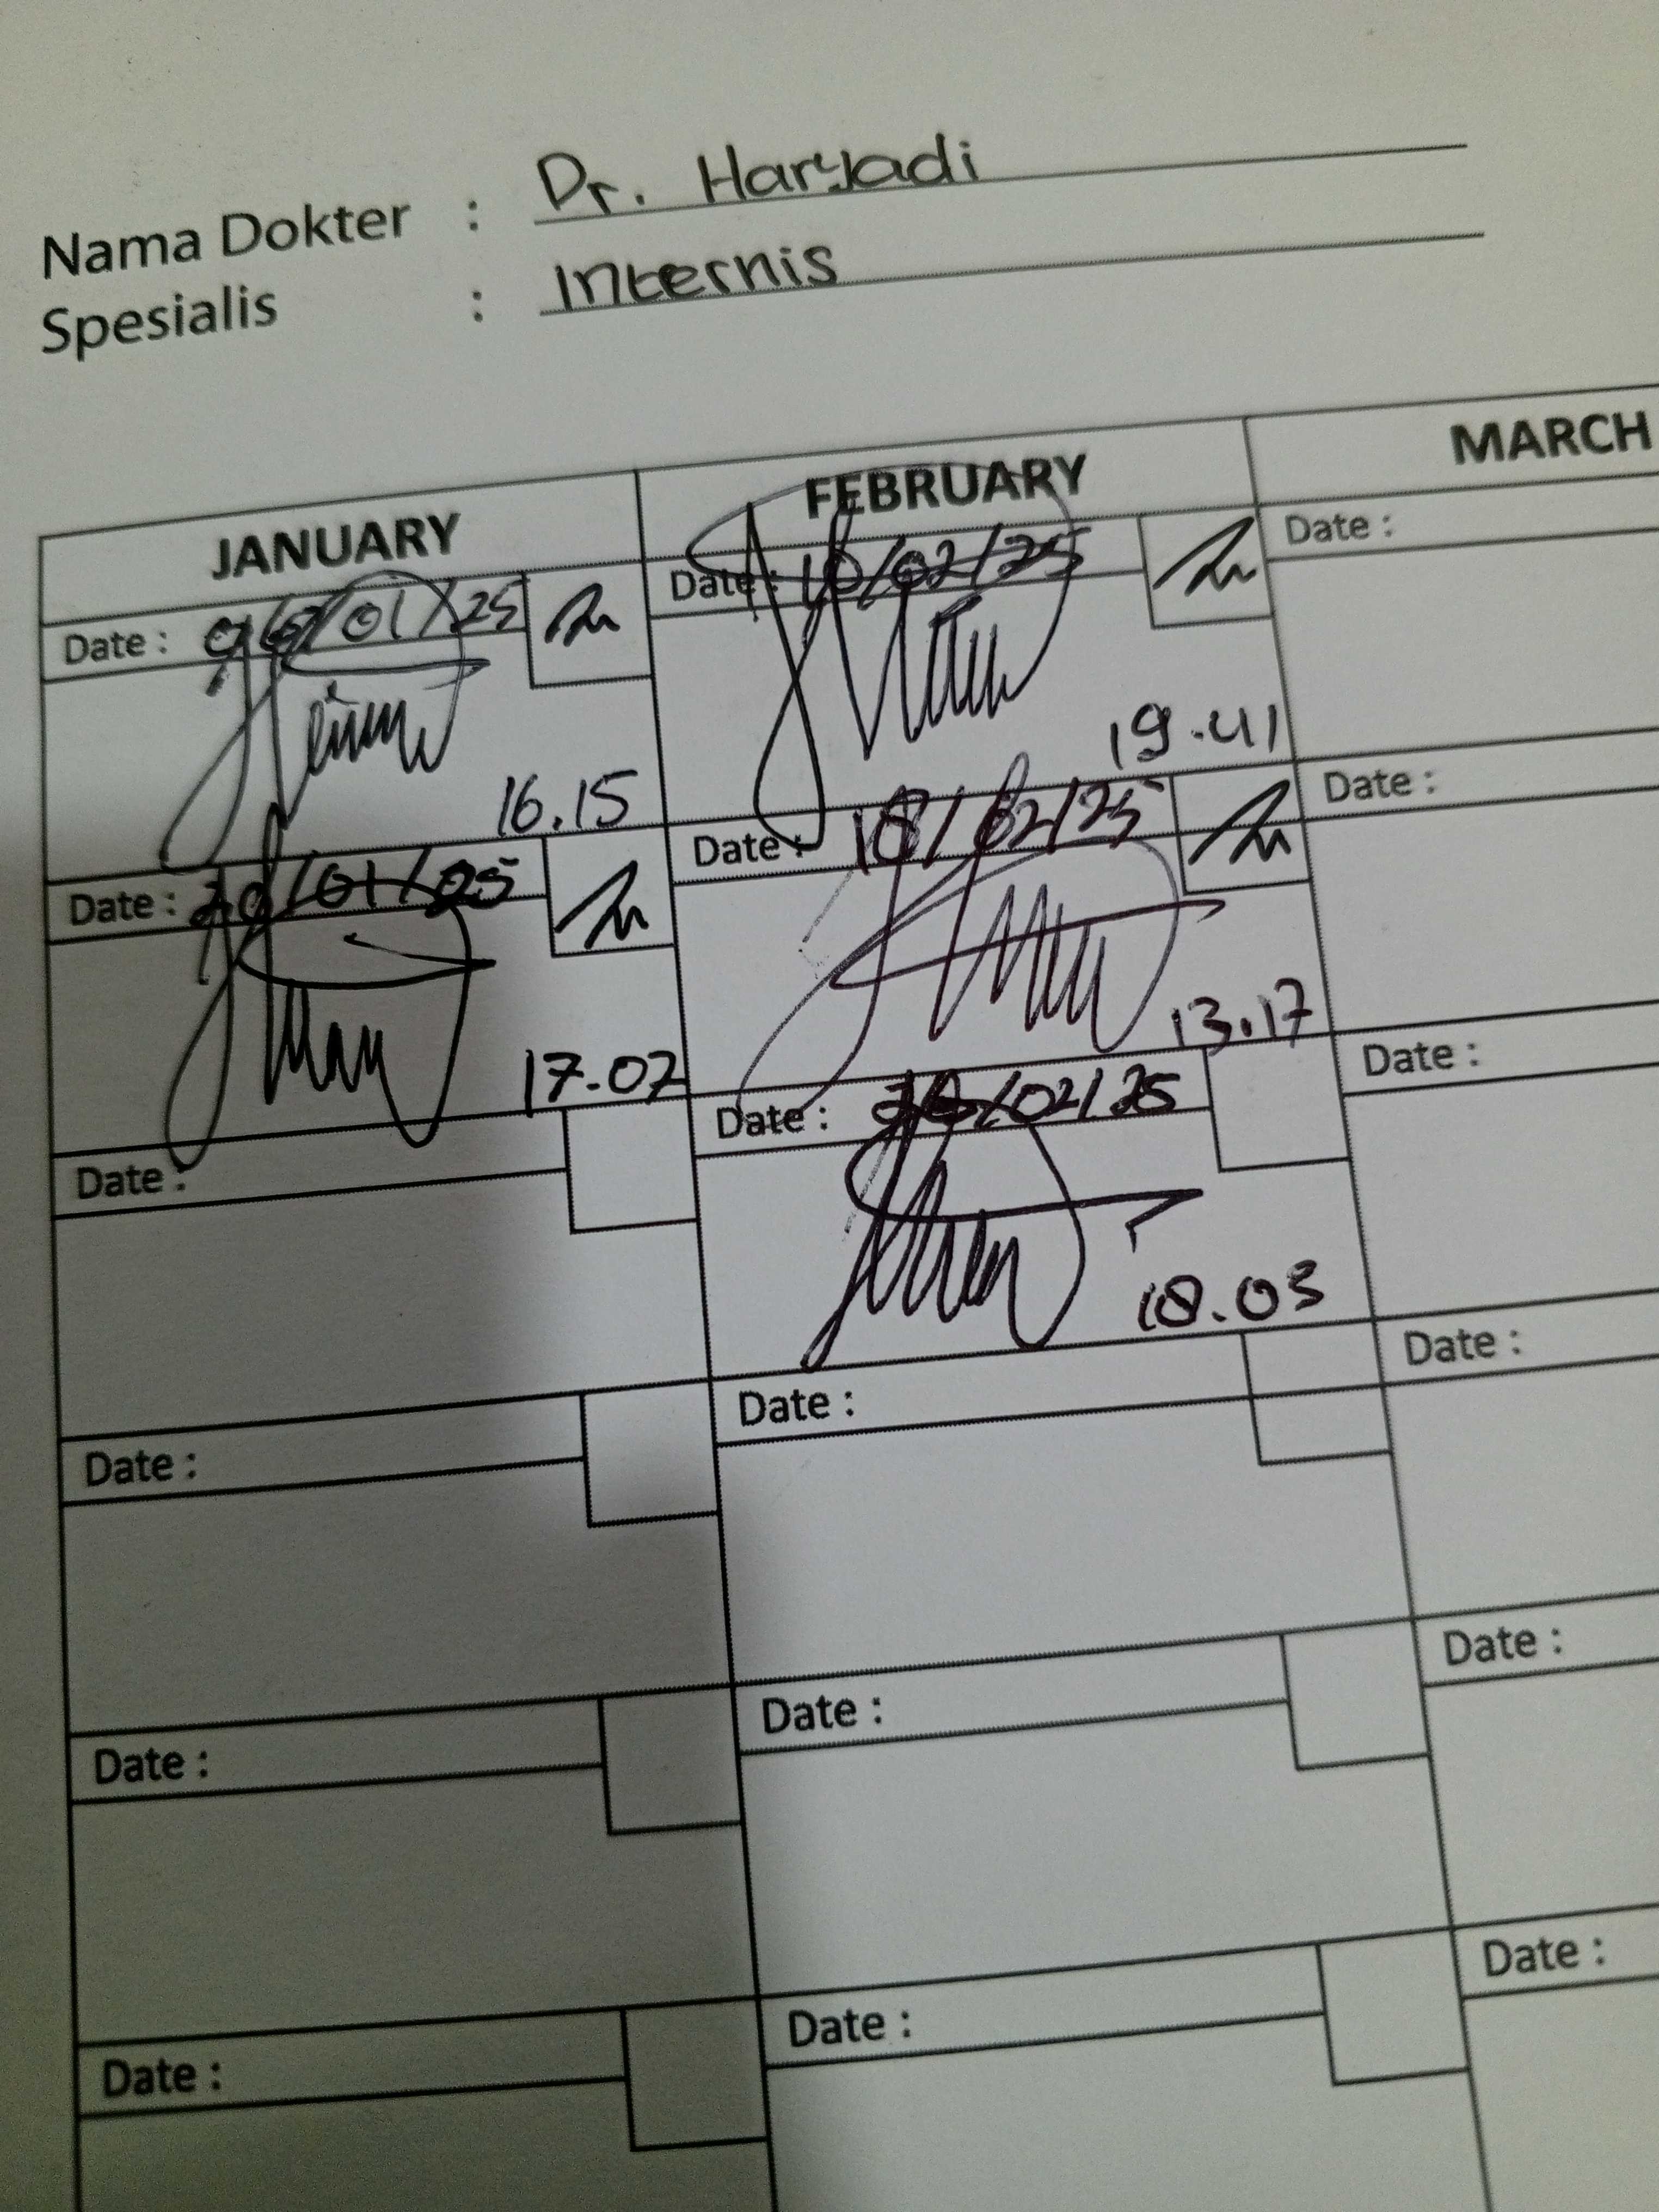 Nama Dokter : Dr. Haryadi
Spesialis : Internis
JANUARY FEBRUARY MARCH
Date : /01/25 Date : 10/02/25 Date :
16.15 19.41
Date : /01/25 Date : 18/02/25 Date :
17.07 13.17
Date : Date : /02/25 Date :
18.03
Date : Date : Date :
Date : Date : Date :
Date : Date : Date :